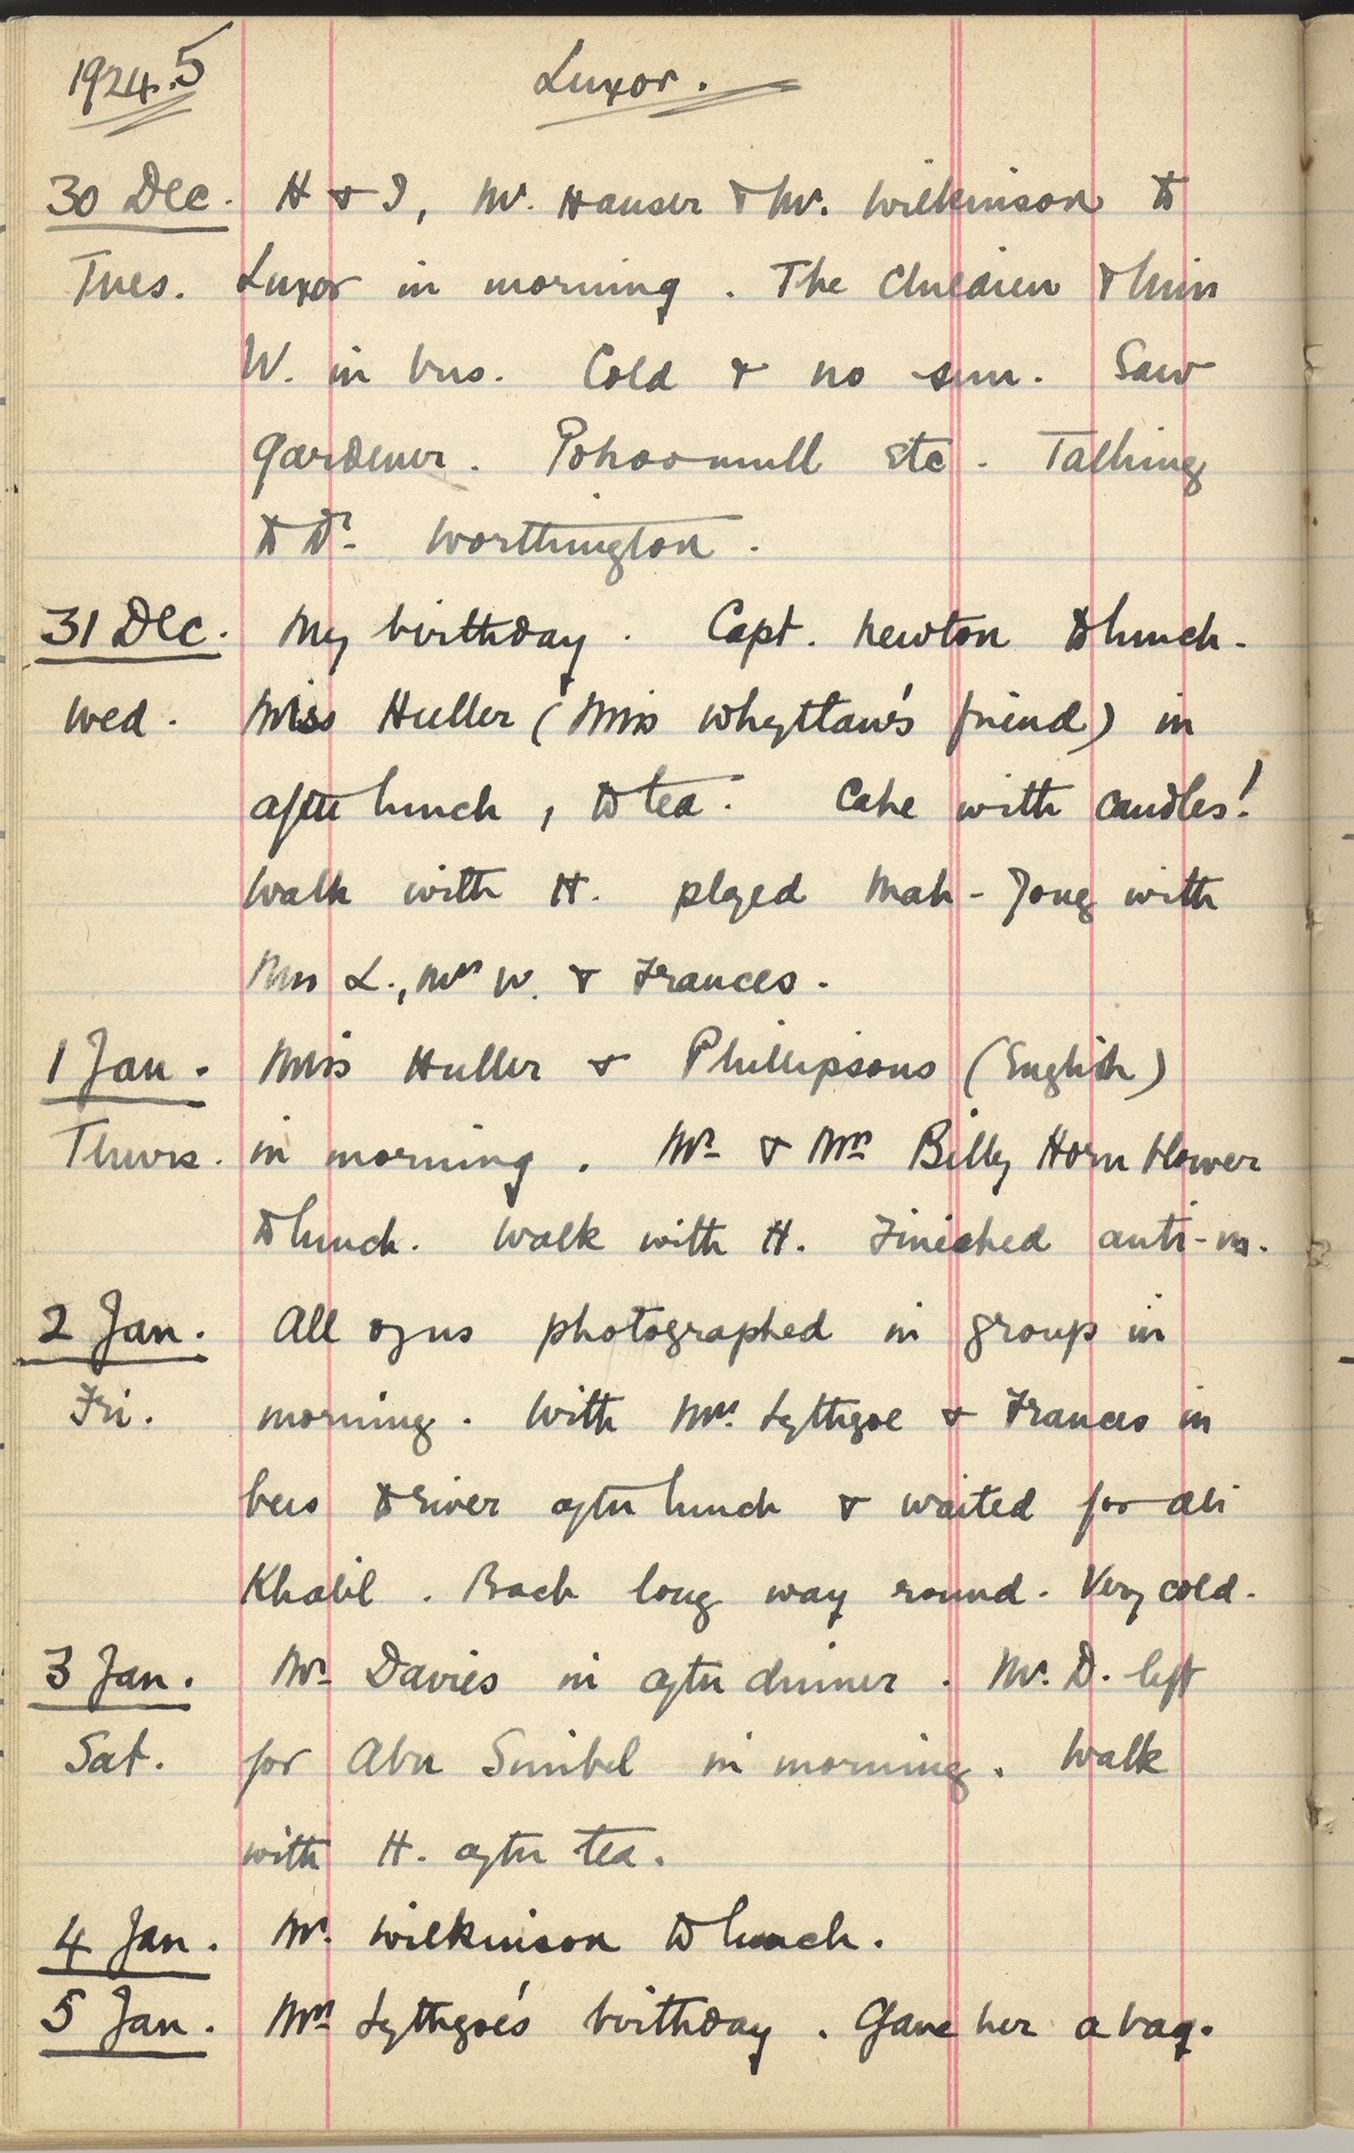 1924.5 Luxor.
30 Dec. H & I, Mr. Hauser & Mr. Wilkinson to
Tues. Luxor in morning. The children & Miss
W. in bus. Cold & no sun. Saw
gardener. Pohoomull etc. Talking
to Dr. Worthington.
31 Dec. My birthday. Capt. Newton to lunch.
Wed. Miss Huller (Miss Whyttaw's friend) in
after lunch, to tea. Cake with candles!
Walk with H. played Mah-Jong with
Mrs L., Mrs W. & Frances.
1 Jan. Miss Huller & Phillipsons (English)
Thurs. in morning. Mr & Mrs Billy Hornblower
to lunch. Walk with H. Finished anti-m.
2 Jan. All of us photographed in group in
Fri. morning. With Mrs. Lythgoe & Frances in
bus to river after lunch & waited for Ali
Khalil. Back long way round. Very cold.
3 Jan. Mr Davies in after dinner. Mr. D. left
Sat. for Abu Simbel in morning. Walk
with H. after tea.
4 Jan. Mr. Wilkinson to lunch.
5 Jan. Mrs Lythgoe's birthday. Gave her a bag.